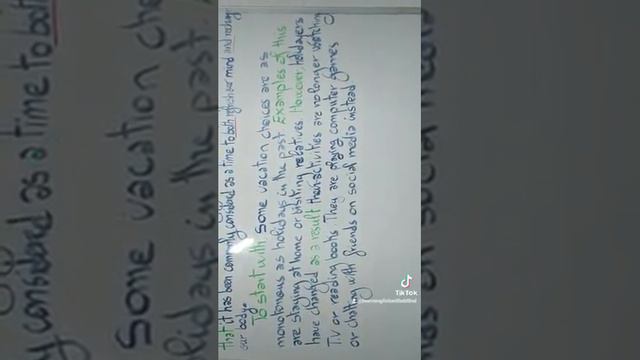 that it has been commonly considered as a time to both refresh our mind and recharge
our body.
To start with, some vacation choices are as
monotonous as holidays in the past. Examples of this
are staying at home or visiting relatives. However, holidayers
have changed as a result their activities are no longer watching
T.V or reading books. They are playing computer games
or chatting with friends on social media instead
TikTok